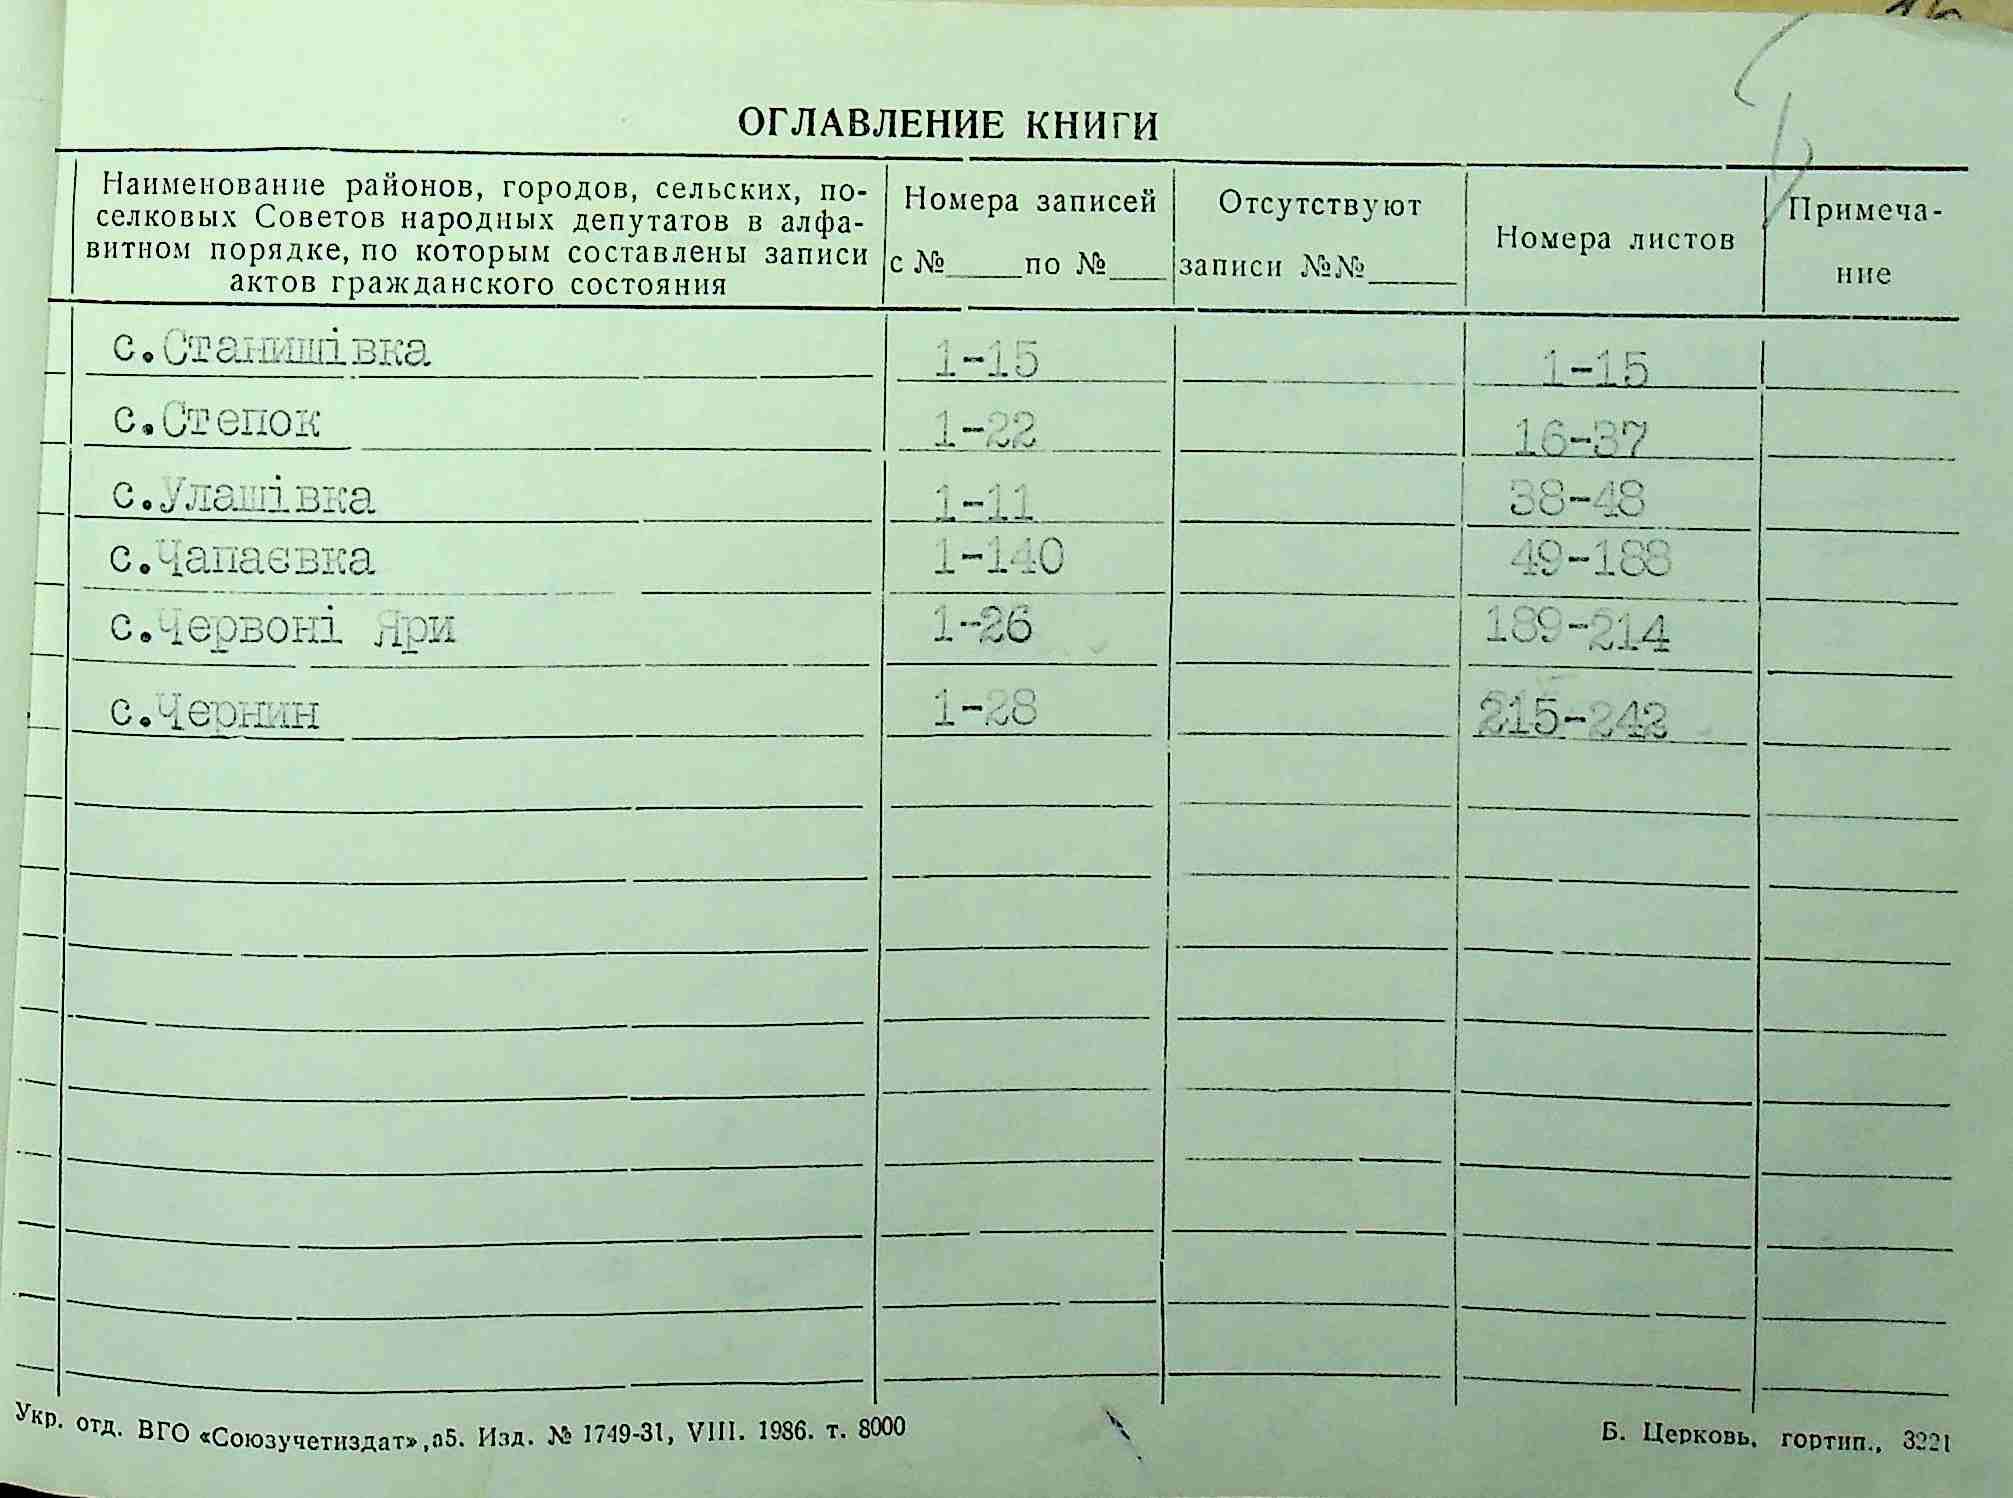 ОГЛАВЛЕНИЕ КНИГИ
Наименование районов, городов, сельских, по-
селковых Советов народных депутатов в алфа-
витном порядке, по которым составлены записи
актов гражданского состояния
Номера записей
с №_____по №____
Отсутствуют
записи №№______
Номера листов
Примеча-
ние
с.Станишівка 1-15 1-15
с.Степок 1-22 16-37
с.Улашівка 1-11 38-48
с.Чапаєвка 1-140 49-188
с.Червоні Яри 1-26 189-214
с.Чернин 1-28 215-242
Укр. отд. ВГО «Союзучетиздат», а5. Изд. № 1749-31, VIII. 1986. т. 8000
Б. Церковь, гортип., 3221